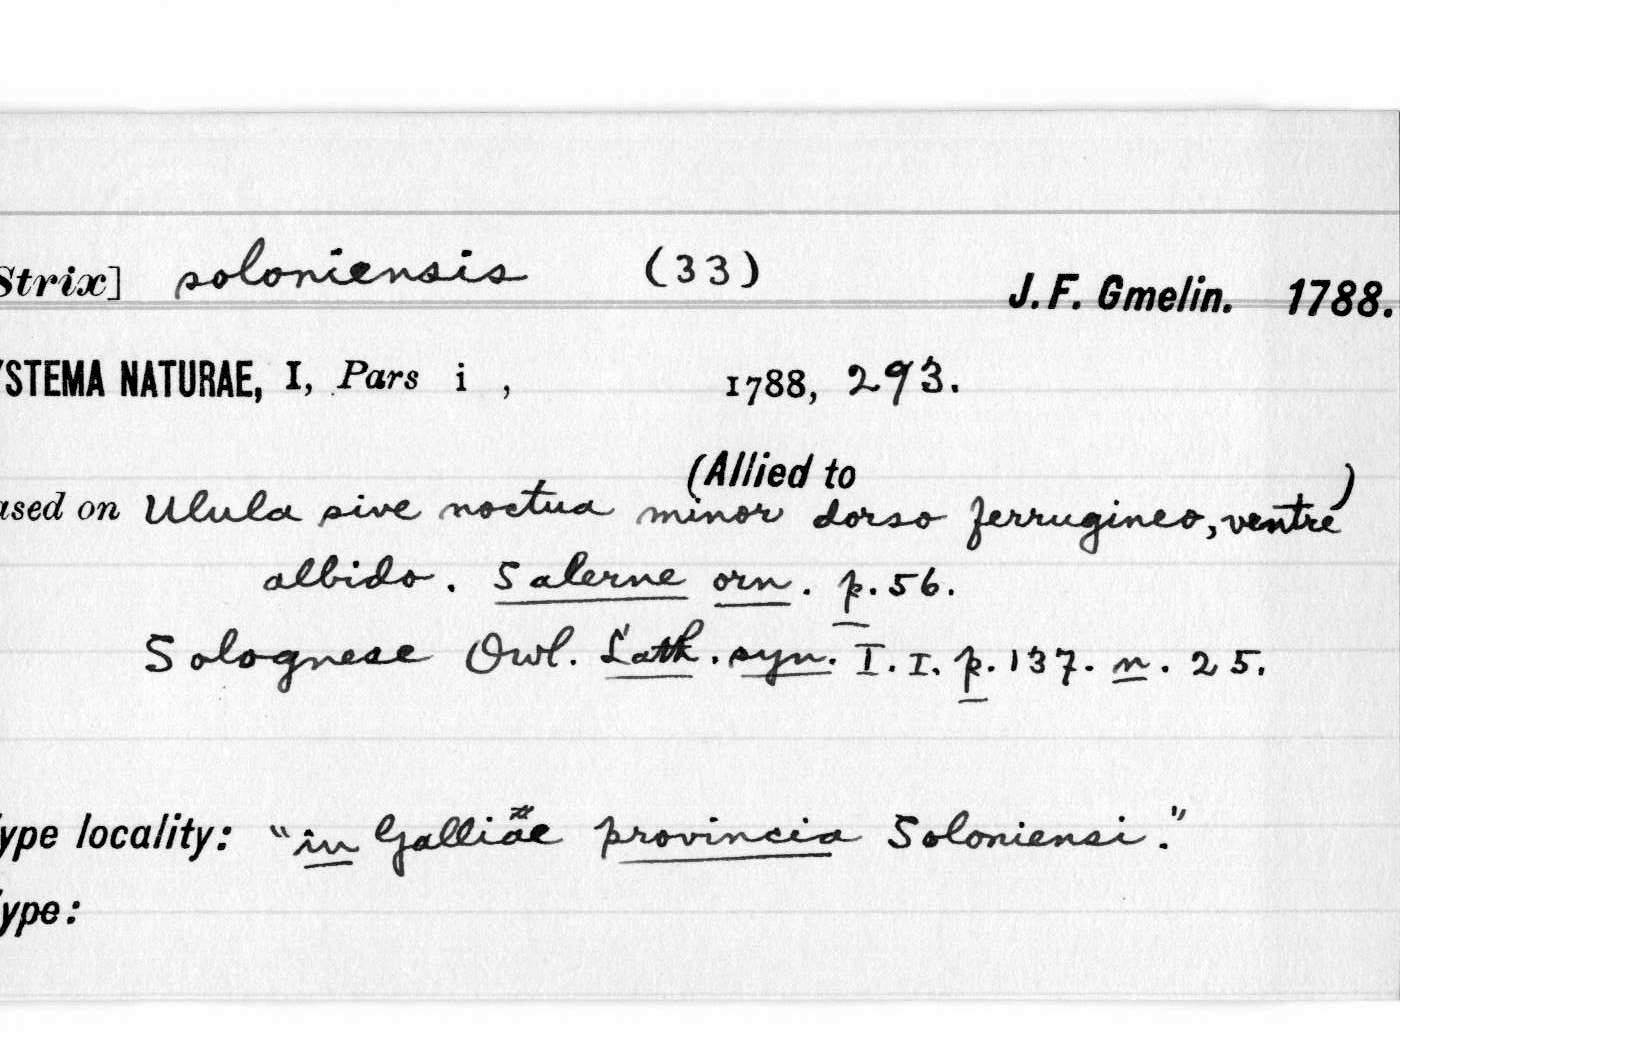 Strix] soloniensis (33)
J. F. Gmelin. 1788.
YSTEMA NATURAE, I, Pars i , 1788, 293.
(Allied to )
ased on Ulula sive noctua minor dorso ferrugineo, ventre
albido. Salerne orn. p. 56.
Solognese Owl. Lath. syn. I. I. p. 137. n. 25.
ype locality: "in Galliae provincia Soloniensi."
ype: